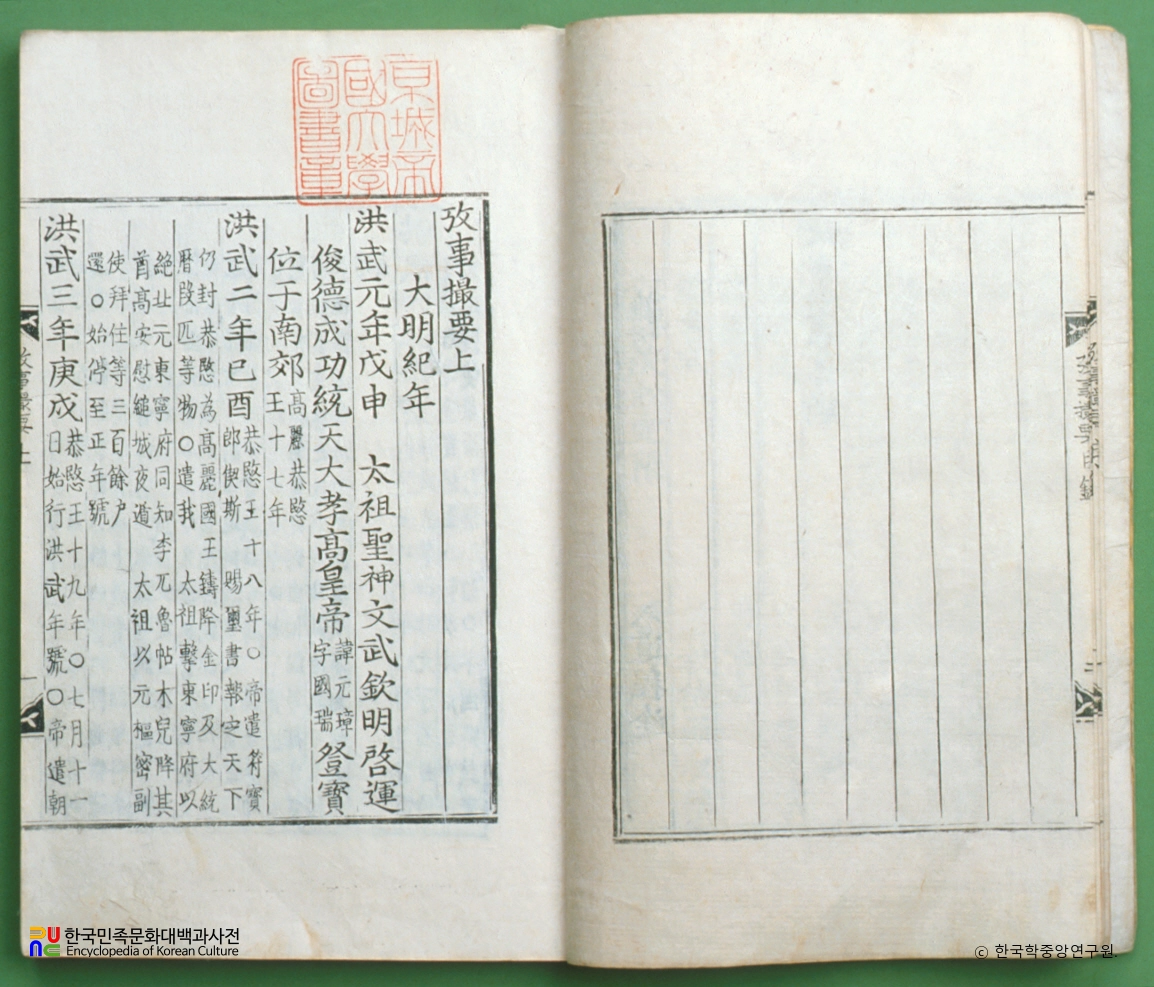 京城帝
國大學
圖書章
攷事撮要上
大明紀年
洪武元年戊申 太祖聖神文武欽明啓運
俊德成功統天大孝高皇帝諱元璋字國瑞登寶
位于南郊高麗恭愍王十七年
洪武二年已酉恭愍王十八年○帝遣符寶郎偰斯 賜璽書報之天下
仍封恭愍為高麗國王鑄降金印及大統曆段匹等物○遣我 太祖擊東寧府以
絶北元東寧府同知李兀魯帖木兒降其酋高安慰縋城夜遁 太祖以元樞密副
使拜住等三百餘户還○始停至正年號
洪武三年庚戌恭愍王十九年○七月十一日始行洪武年號○帝遣朝
攷事撮要上
한국민족문화대백과사전
Encyclopedia of Korean Culture
© 한국학중앙연구원